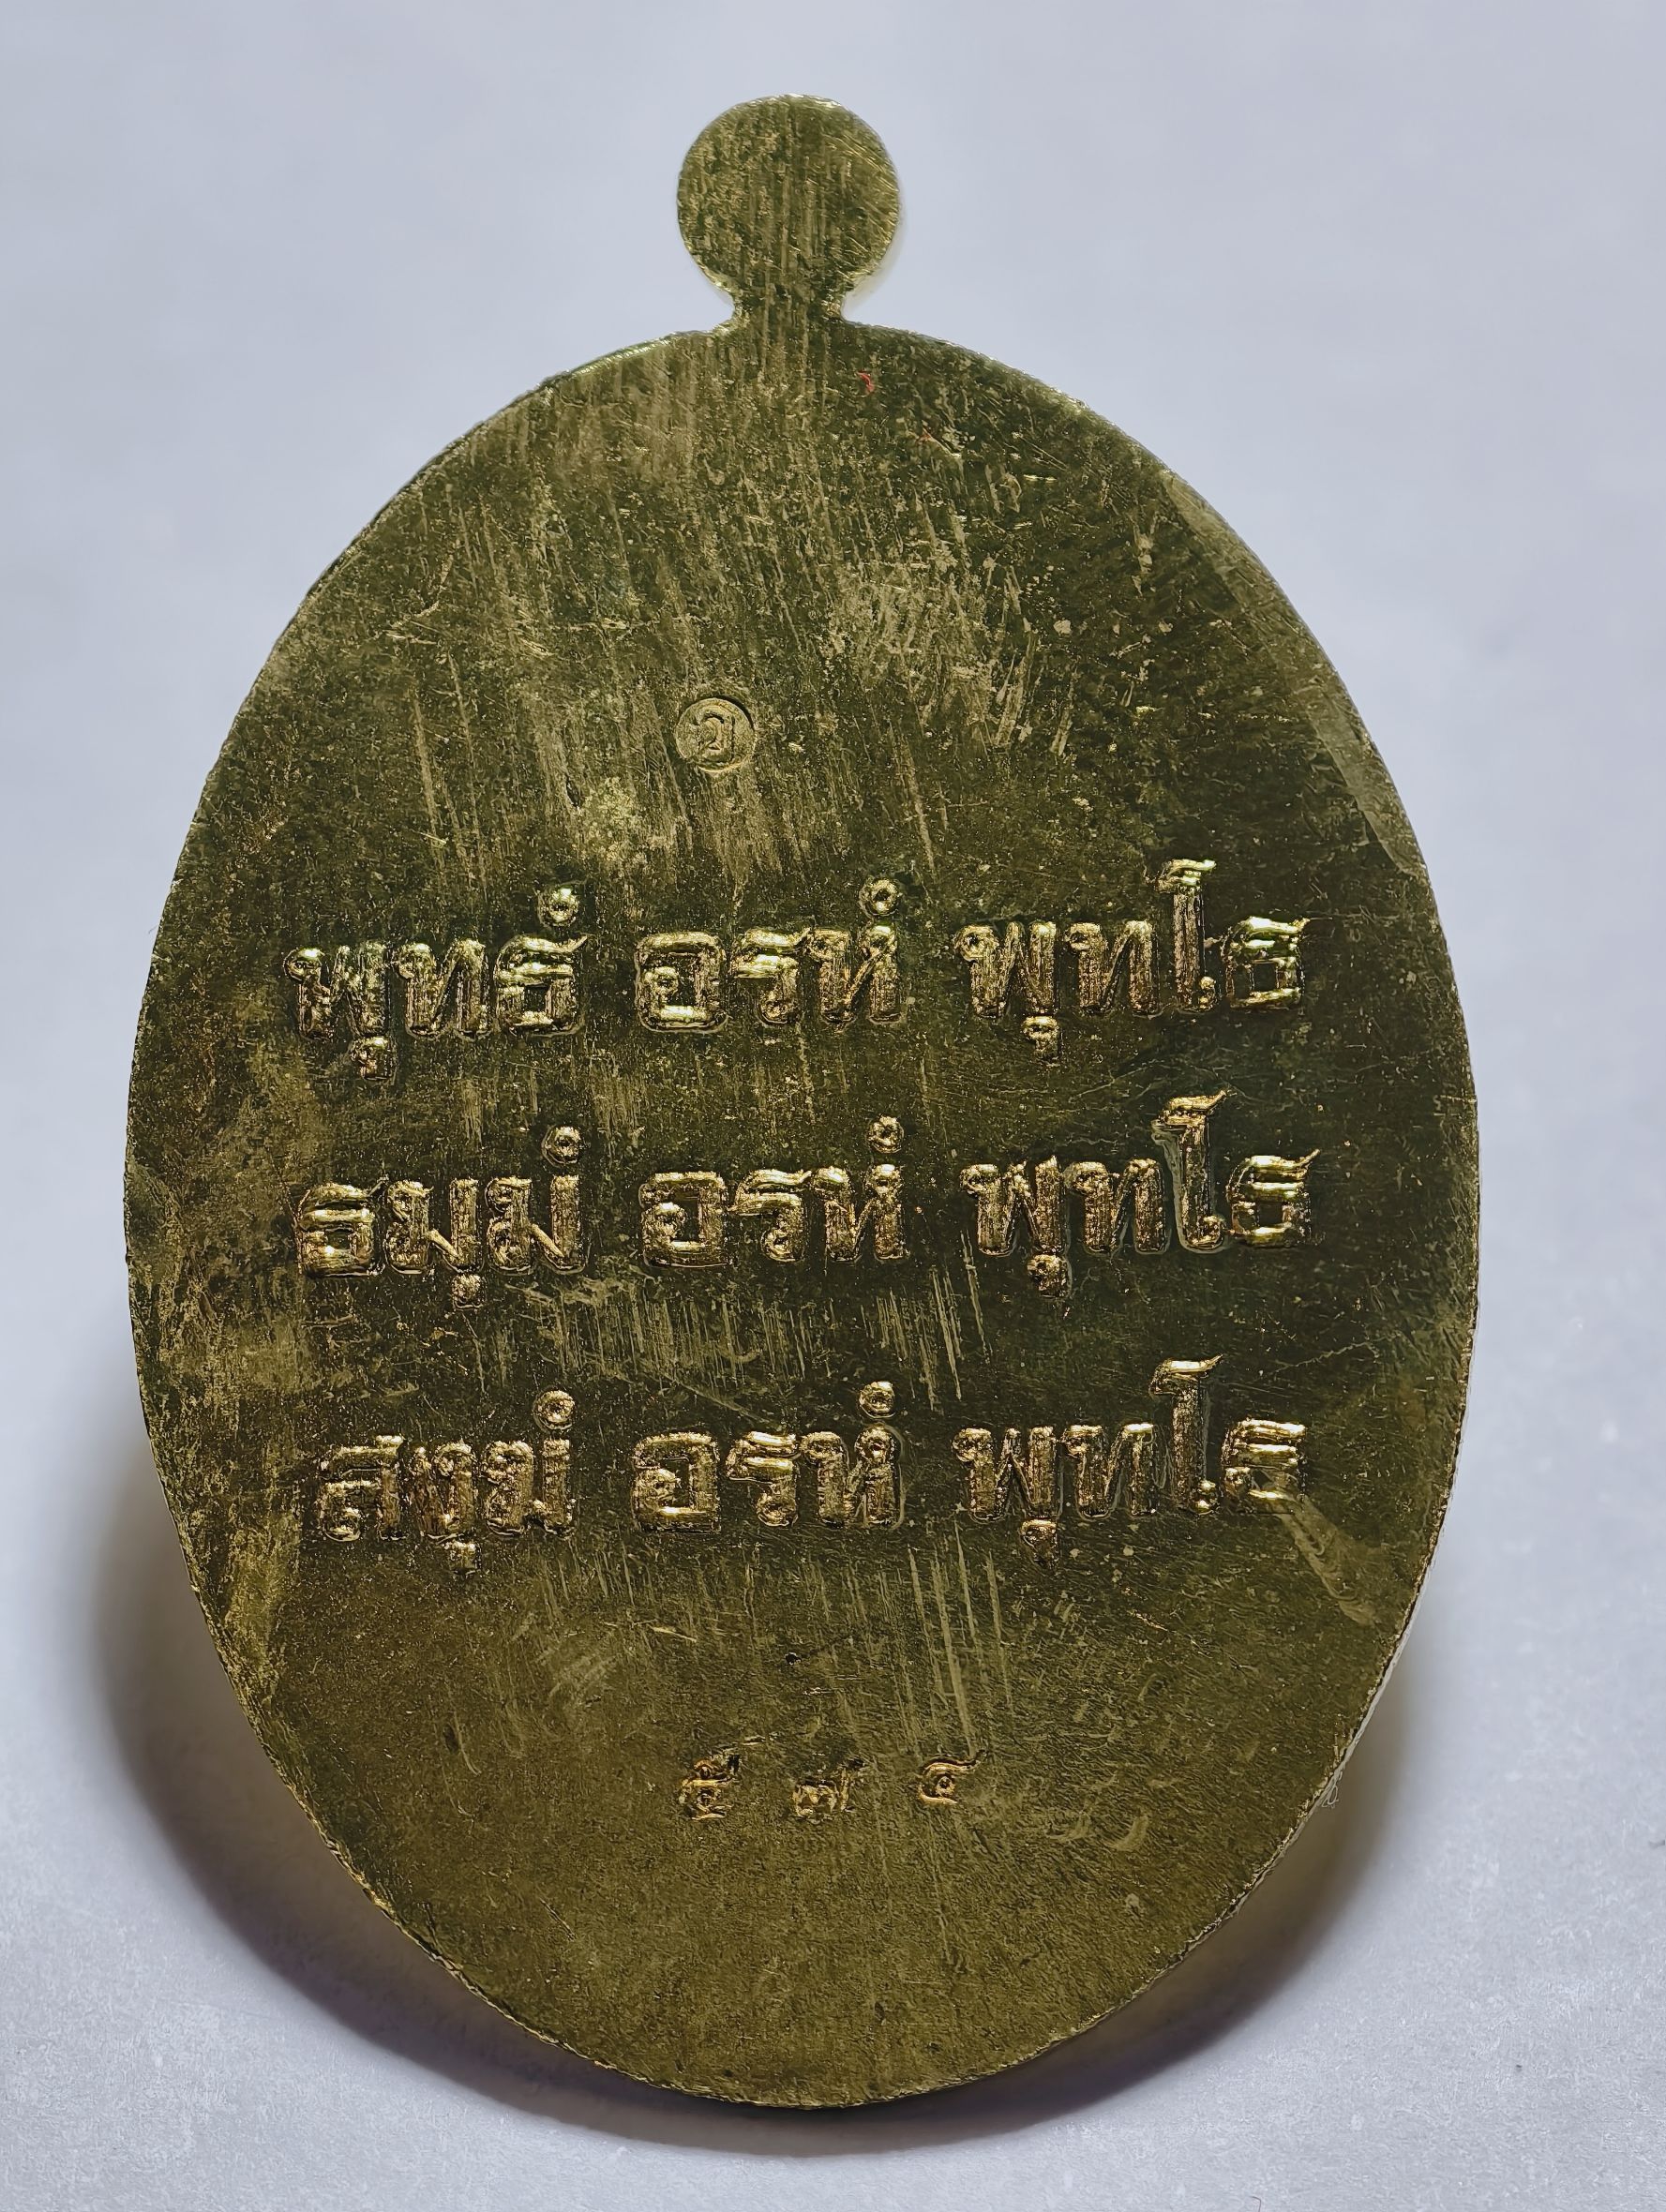 พุทธํ อรหํ พุทโธ
ธมฺมํ อรหํ พุทโธ
สงฺฆํ อรหํ พุทโธ
๕๗๔